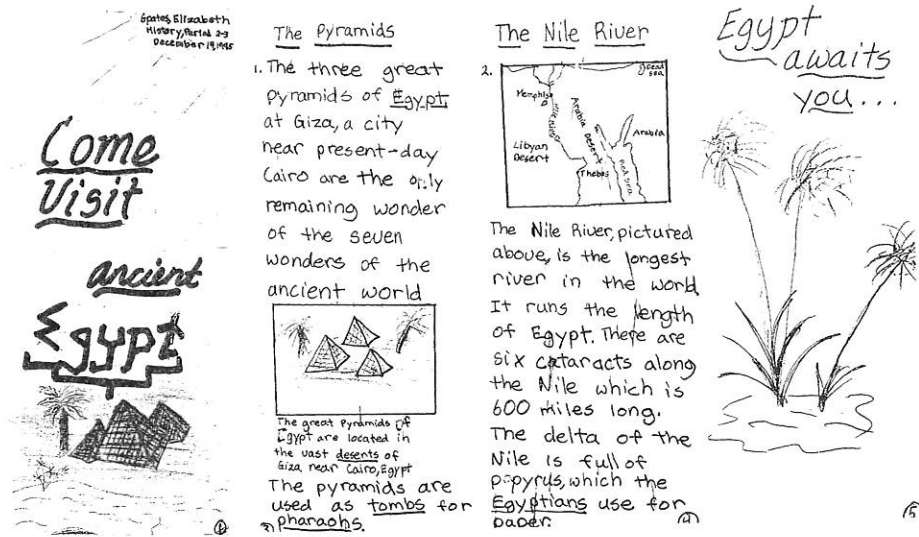 Spates, Elizabeth
History, Period 2-3
December 19, 1995
Come
Visit
ancient
Egypt
1
The Pyramids
1. The three great
pyramids of Egypt
at Giza, a city
near present-day
Cairo are the only
remaining wonder
of the seven
wonders of the
ancient world
The great Pyramids of
Egypt are located in
the vast desents of
Giza near Cairo, Egypt
The pyramids are
used as tombs for
pharaohs.
The Nile River
2.
Dead
sea
Memphis
Nile River
Arabia Desert
Arabia
Libyan
Desert
Thebes
Red sea
The Nile River, pictured
above, is the longest
river in the world
It runs the length
of Egypt. There are
six cataracts along
the Nile which is
600 miles long.
The delta of the
Nile is full of
papyrus, which the
Egyptians use for
paper.
4
Egypt
awaits
you...
5